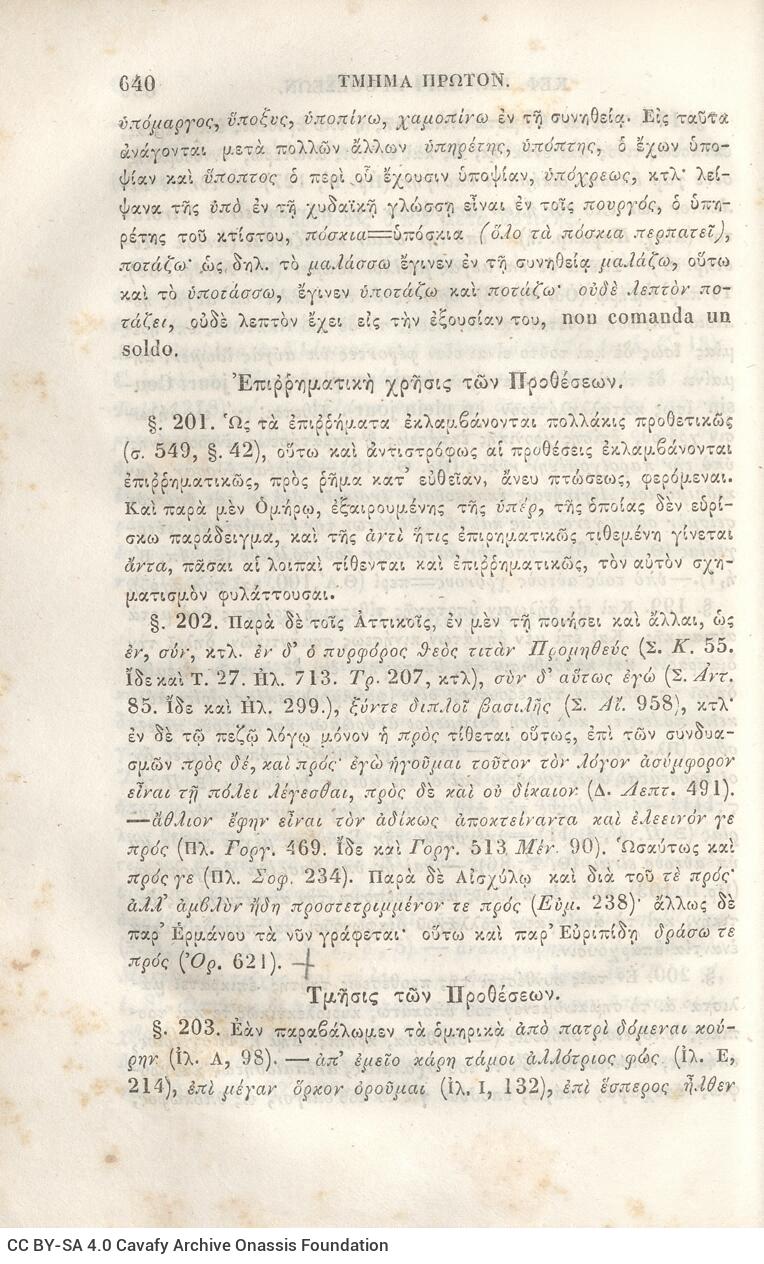 640 ΤΜΗΜΑ ΠΡΩΤΟΝ.
ὑπόμαργος, ὕποξυς, ὑποπίνω, χαμοπίνω ἐν τῇ συνηθείᾳ. Εἰς ταῦτα
ἀνάγονται μετὰ πολλῶν ἄλλων ὑπηρέτης, ὑπόπτης, ὁ ἔχων ὑπο-
ψίαν καὶ ὕποπτος ὁ περὶ οὗ ἔχουσιν ὑποψίαν, ὑπόχρεως, κτλ· λεί-
ψανα τῆς ὑπὸ ἐν τῇ χυδαϊκῇ γλώσσῃ εἶναι ἐν τοῖς πουργός, ὁ ὑπη-
ρέτης τοῦ κτίστου, πόσκια=ὑπόσκια (ὅλο τὰ πόσκια περπατεῖ),
ποτάζω· ὡς δηλ. τὸ μαλάσσω ἔγινεν ἐν τῇ συνηθείᾳ μαλάζω, οὕτω
καὶ τὸ ὑποτάσσω, ἔγινεν ὑποτάζω καὶ ποτάζω· οὐδὲ λεπτὸν πο-
τάζει, οὐδὲ λεπτὸν ἔχει εἰς τὴν ἐξουσίαν του, non comanda un
soldo.
Ἐπιῤῥηματικὴ χρῆσις τῶν Προθέσεων.
§. 201. Ὡς τὰ ἐπιῤῥήματα ἐκλαμβάνονται πολλάκις προθετικῶς
(σ. 549, §. 42), οὕτω καὶ ἀντιστρόφως αἱ προθέσεις ἐκλαμβάνονται
ἐπιῤῥηματικῶς, πρὸς ῥῆμα κατ᾽ εὐθεῖαν, ἄνευ πτώσεως, φερόμεναι.
Καὶ παρὰ μὲν Ὁμήρῳ, ἐξαιρουμένης τῆς ὑπέρ, τῆς ὁποίας δὲν εὑρί-
σκω παράδειγμα, καὶ τῆς ἀντὶ ἥτις ἐπιρηματικῶς τιθεμένη γίνεται
ἄντα, πᾶσαι αἱ λοιπαὶ τίθενται καὶ ἐπιῤῥηματικῶς, τὸν αὐτὸν σχη-
ματισμὸν φυλάττουσαι.
§. 202. Παρὰ δὲ τοῖς Ἀττικοῖς, ἐν μὲν τῇ ποιήσει καὶ ἄλλαι, ὡς
ἐν, σύν, κτλ. ἐν δ᾽ ὁ πυρφόρος θεὸς τιτὰν Προμηθεύς (Σ. Κ. 55.
Ἴδε καὶ Τ. 27. Ἠλ. 713. Τρ. 207, κτλ), σὺν δ᾽ αὕτως ἐγώ (Σ. Ἀντ.
85. Ἴδε καὶ Ἠλ. 299.), ξύντε διπλοῖ βασιλῆς (Σ. Αἴ. 958), κτλ·
ἐν δὲ τῷ πεζῷ λόγῳ μόνον ἡ πρὸς τίθεται οὕτως, ἐπὶ τῶν συνδυα-
σμῶν πρὸς δέ, καὶ πρός· ἐγὼ ἡγοῦμαι τοῦτον τὸν λόγον ἀσύμφορον
εἶναι τῇ πόλει λέγεσθαι, πρὸς δὲ καὶ οὐ δίκαιον (Δ. Λεπτ. 491).
—ἄθλιον ἔφην εἶναι τὸν ἀδίκως ἀποκτείναντα καὶ ἐλεεινόν γε
πρός (Πλ. Γοργ. 469. Ἴδε καὶ Γοργ. 513 Μέν. 90). Ὡσαύτως καὶ
πρός γε (Πλ. Σοφ. 234). Παρὰ δὲ Αἰσχύλῳ καὶ διὰ τοῦ τὲ πρός·
ἀλλ᾽ ἀμβλὺν ἤδη προστετριμμένον τε πρός (Εὐμ. 238)· ἄλλως δὲ
παρ᾽ Ἑρμάνου τὰ νῦν γράφεται· οὕτω καὶ παρ᾽ Εὐριπίδῃ δράσω τε
πρός (Ὀρ. 621).
Τμῆσις τῶν Προθέσεων.
§. 203. Ἐὰν παραβάλωμεν τὰ ὁμηρικὰ ἀπὸ πατρὶ δόμεναι κού-
ρην (Ἰλ. Α, 98). — ἀπ᾽ ἐμεῖο κάρη τάμοι ἀλλότριος φώς (Ἰλ. Ε,
214), ἐπὶ μέγαν ὅρκον ὀροῦμαι (Ἰλ. Ι, 132), ἐπὶ ἕσπερος ἦλθεν
CC BY-SA 4.0 Cavafy Archive Onassis Foundation